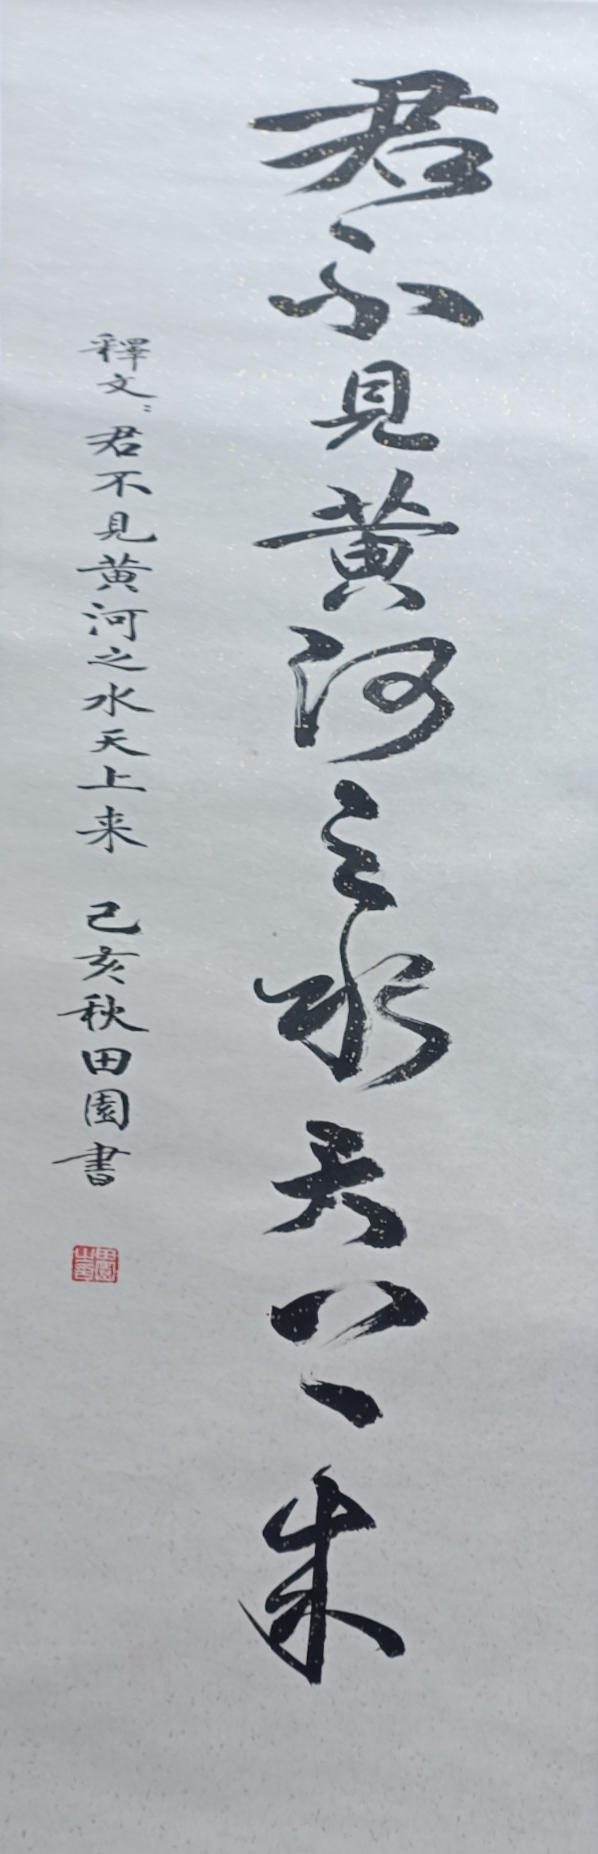 君不見黄河之水天上来
釋文：君不見黄河之水天上来 己亥秋田園書